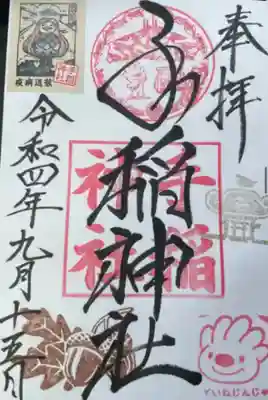 奉拝
手稲神社
手稲
神社
疫病退散
令和四年九月十五日
ていねじんじゃ